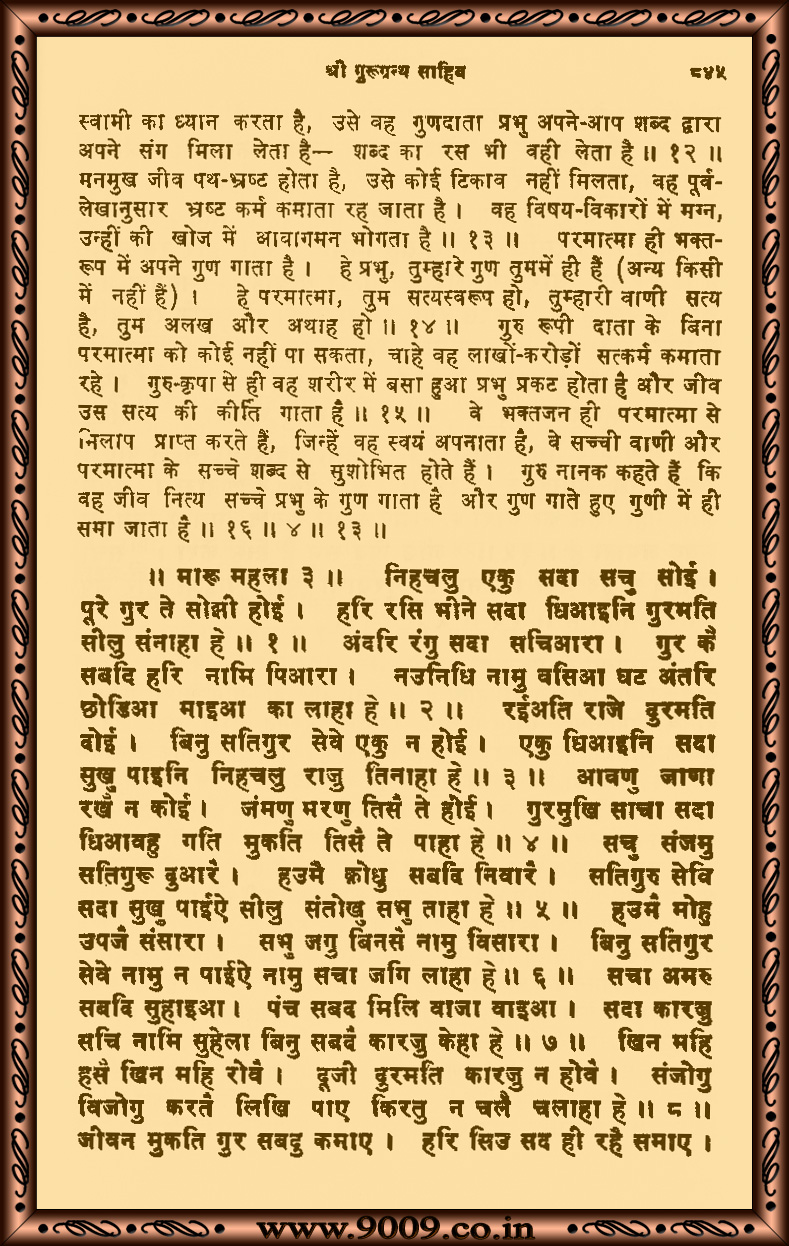 श्री गुरूग्रन्थ साहिब ८४५
स्वामी का ध्यान करता है, उसे वह गुणदाता प्रभु अपने-आप शब्द द्वारा
अपने संग मिला लेता है— शब्द का रस भी वही लेता है ॥ १२ ॥
मनमुख जीव पथ-भ्रष्ट होता है, उसे कोई टिकाव नहीं मिलता, वह पूर्व-
लेखानुसार भ्रष्ट कर्म कमाता रह जाता है । वह विषय-विकारों में मग्न,
उन्हीं की खोज में आवागमन भोगता है ॥ १३ ॥ परमात्मा ही भक्त-
रूप में अपने गुण गाता है । हे प्रभु, तुम्हारे गुण तुममें ही हैं (अन्य किसी
में नहीं हैं) । हे परमात्मा, तुम सत्यस्वरूप हो, तुम्हारी वाणी सत्य
है, तुम अलख और अथाह हो ॥ १४ ॥ गुरु रूपी दाता के बिना
परमात्मा को कोई नहीं पा सकता, चाहे वह लाखों-करोड़ों सत्कर्म कमाता
रहे । गुरु-कृपा से ही वह शरीर में बसा हुआ प्रभु प्रकट होता है और जीव
उस सत्य की कीर्ति गाता है ॥ १५ ॥ वे भक्तजन ही परमात्मा से
मिलाप प्राप्त करते हैं, जिन्हें वह स्वयं अपनाता है, वे सच्ची वाणी और
परमात्मा के सच्चे शब्द से सुशोभित होते हैं । गुरु नानक कहते हैं कि
वह जीव नित्य सच्चे प्रभु के गुण गाता है और गुण गाते हुए गुणी में ही
समा जाता है ॥ १६ ॥ ४ ॥ १३ ॥
॥ मारू महला ३ ॥ निहचलु एकु सदा सचु सोई ।
पूरे गुर ते सोझी होई । हरि रसि भीने सदा धिआइनि गुरमति
सीलु संनाहा हे ॥ १ ॥ अंदरि रंगु सदा सचिआरा । गुर कै
सबदि हरि नामि पिआरा । नउनिधि नामु वसिआ घट अंतरि
छोडिआ माइआ का लाहा हे ॥ २ ॥ रईअति राजे दुरमति
दोई । बिनु सतिगुर सेवे एकु न होई । एकु धिआइनि सदा
सुखु पाइनि निहचलु राजु तिनाहा हे ॥ ३ ॥ आवणु जाणा
रखै न कोई । जंमणु मरणु तिसै ते होई । गुरमुखि साचा सदा
धिआवहु गति मुकति तिसै ते पाहा हे ॥ ४ ॥ सचु संजमु
सतिगुरू दुआरै । हउमै क्रोधु सबदि निवारै । सतिगुरु सेवि
सदा सुखु पाईऐ सीलु संतोखु सभु ताहा हे ॥ ५ ॥ हउमै मोहु
उपजै संसारा । सभु जगु बिनसै नामु विसारा । बिनु सतिगुर
सेवे नामु न पाईऐ नामु सचा जगि लाहा हे ॥ ६ ॥ सचा अमरु
सबदि सुहाइआ । पंच सबद मिलि वाजा वाइआ । सदा कारजु
सचि नामि सुहेला बिनु सबदै कारजु केहा हे ॥ ७ ॥ खिन महि
हसै खिन महि रोवै । दूजी दुरमति कारजु न होवै । संजोगु
विजोगु करतै लिखि पाए किरतु न चलै चलाहा हे ॥ ८ ॥
जीवन मुकति गुर सबदु कमाए । हरि सिउ सद ही रहै समाए ।
www.9009.co.in